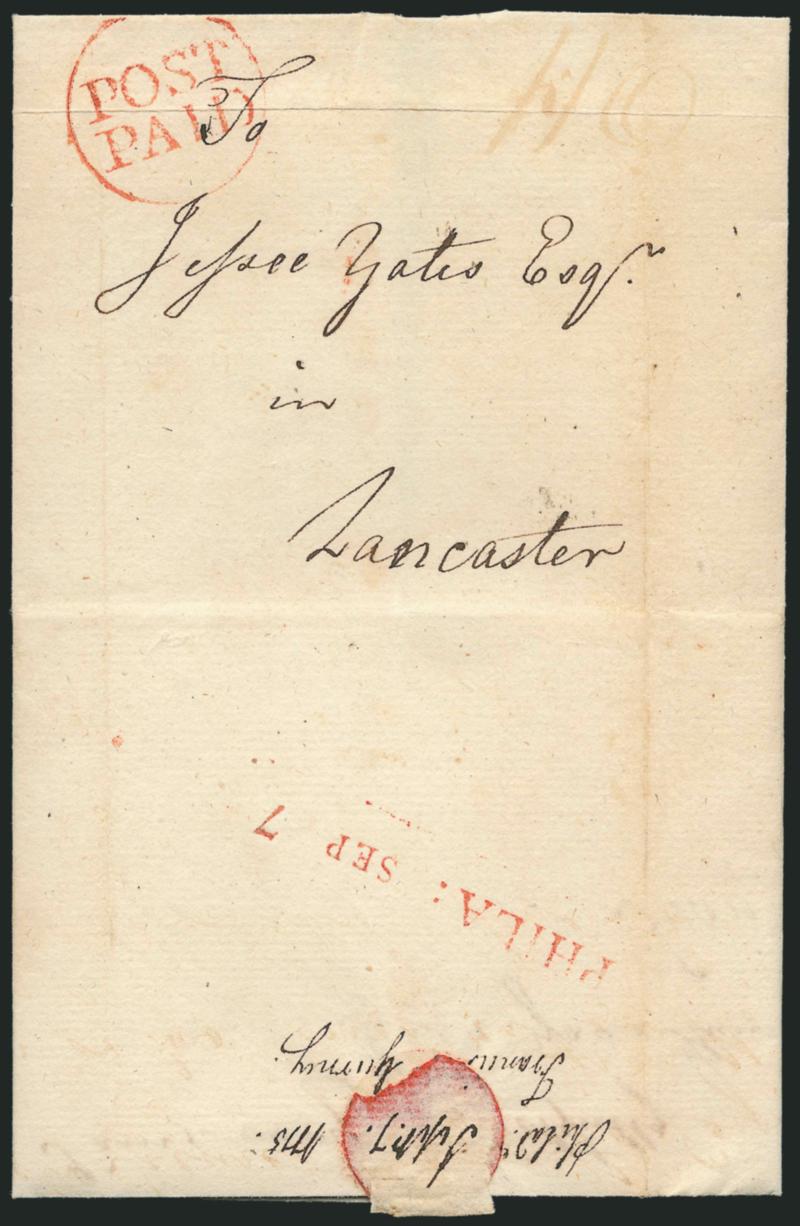 POST
PAID
To
Jessee Yates Esqr.
in
Lancaster
PHILA: SEP 7
Philada. Sept. 7. 1775.
Francis
Gurney.